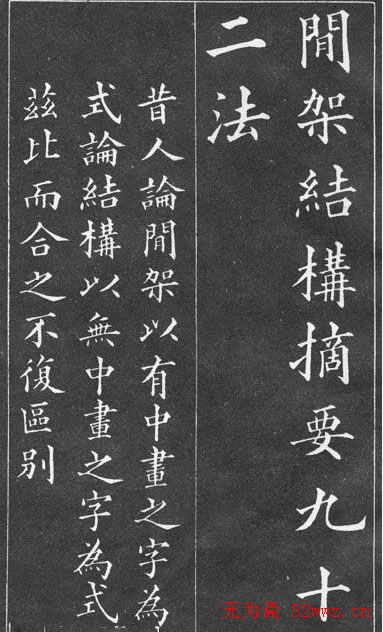 間架結構摘要九十
二法
昔人論間架以有中畫之字為
式論結構以無中畫之字為式
茲比而合之不復區别
无为斋 52wwz.cn